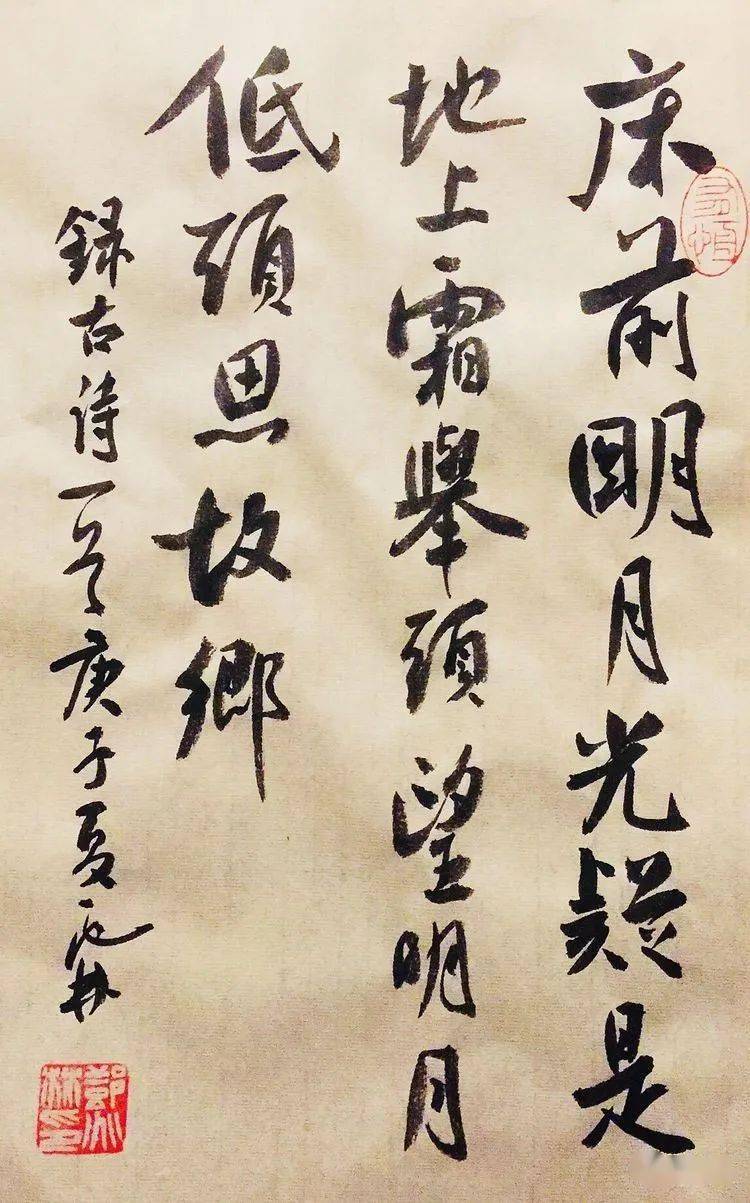 床前明月光疑是
地上霜舉頭望明月
低頭思故鄉
録古詩一首庚子夏